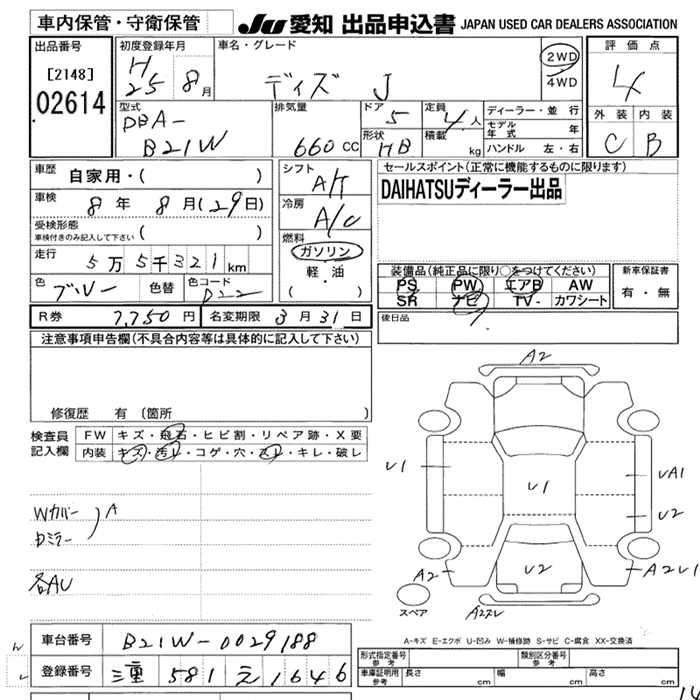 車内保管・守衛保管
JU 愛知 出品申込書 JAPAN USED CAR DEALERS ASSOCIATION
出品番号
[2148]
02614
初度登録年月
H
25 8月
車名・グレード
ディズ J
2WD
4WD
評価点
4
外装 内装
C B
型式
DBA-
B21W
排気量
660cc
ドア
5
形状
HB
定員
4人
積載
kg
ディーラー・並行
モデル年式 年
ハンドル 左・右
車歴
自家用・( )
車検
8年 8月(29日)
受検形態
車検付きのみ記入して下さい ( )
走行
5万5千321km
色
ブルー
色替
色コード
シフト
A/T
冷房
A/C
燃料
ガソリン
軽・油
( ・ )
セールスポイント(正常に機能するものに限ります)
DAIHATSUディーラー出品
装備品(純正品に限り○をつけてください)
PS PW エアB AW
SR ナビ TV- カワシート
新車保証書
有・無
後日品
R券 7,750円
名変期限 3月31日
注意事項申告欄(不具合内容等は具体的に記入して下さい)
修復歴 有(箇所
検査員
記入欄
FW キズ・飛石・ヒビ割・リペア跡・X要
内装 キズ・汚レ・コゲ・穴・スレ・キレ・破レ
Wカバー
Dミラー
) A
各AU
A2
U1
U1
UA1
U2
U2
A2
A2U1
スペア
A-キズ E-エクボ U-凹み W-補修跡 S-サビ C-腐食 XX-交換済
車台番号 B21W-0029188
登録番号 三重 581 え 1646
形式指定番号
参考
類別区分番号
参考
車庫証明用
参考
長さ cm
幅 cm
高さ cm